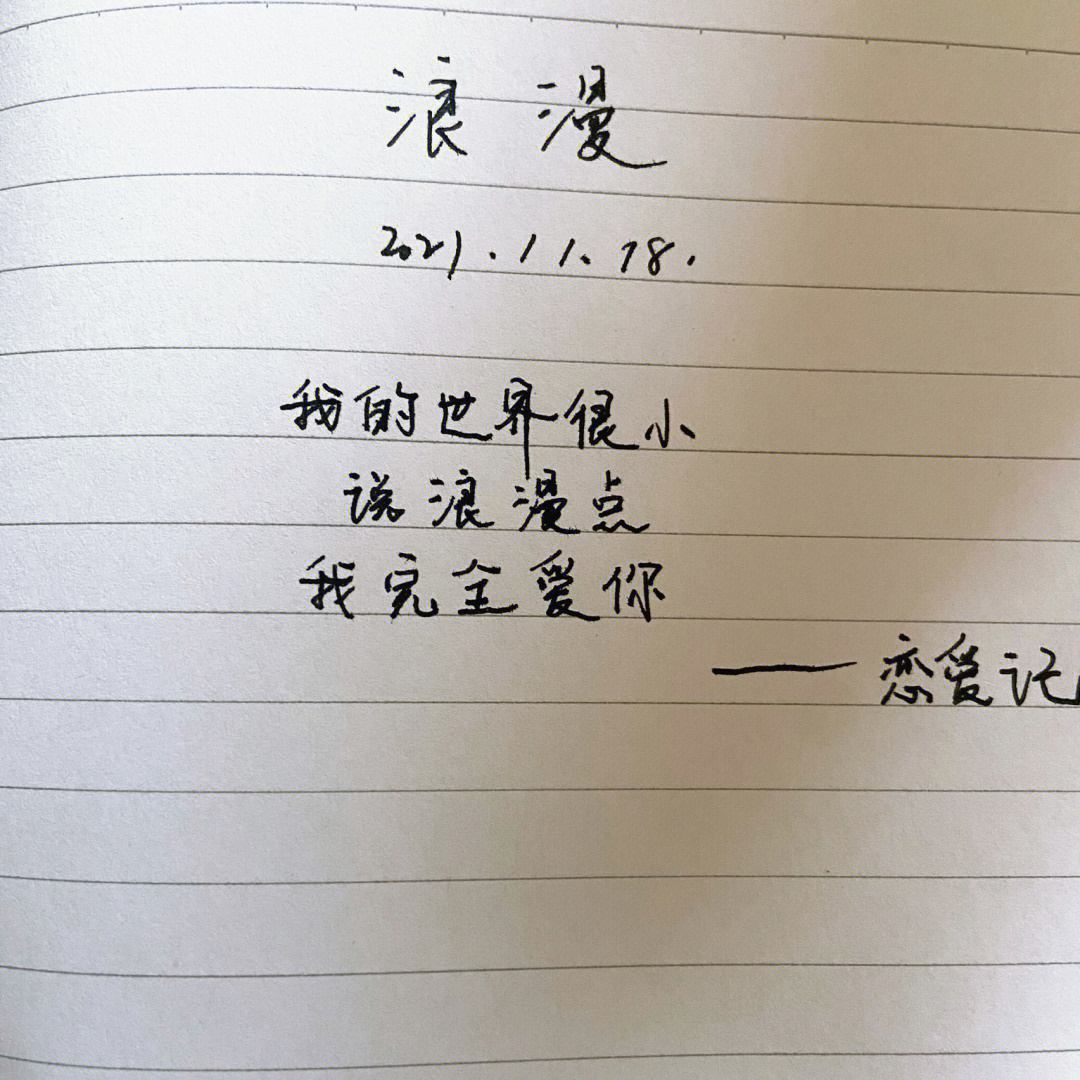 浪漫
2021.11.18.
我的世界很小
说浪漫点
我完全爱你
——恋爱记